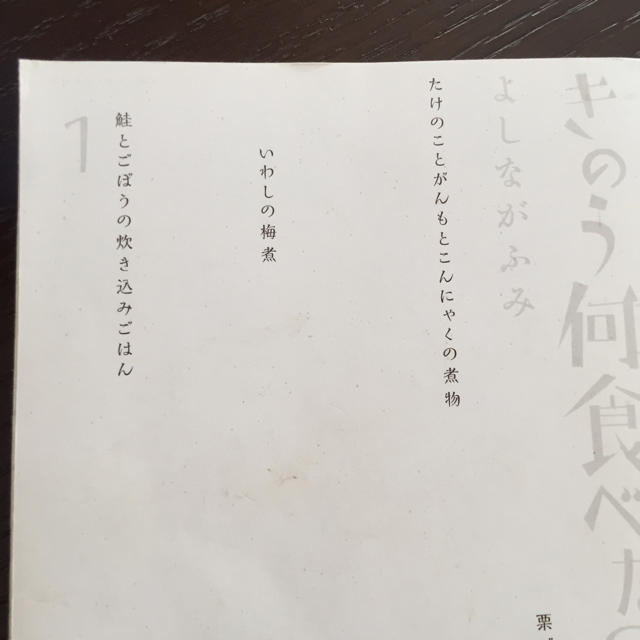 きのう何食べた
よしながふみ
たけのことがんもとこんにゃくの煮物
いわしの梅煮
鮭とごぼうの炊き込みごはん
1
栗